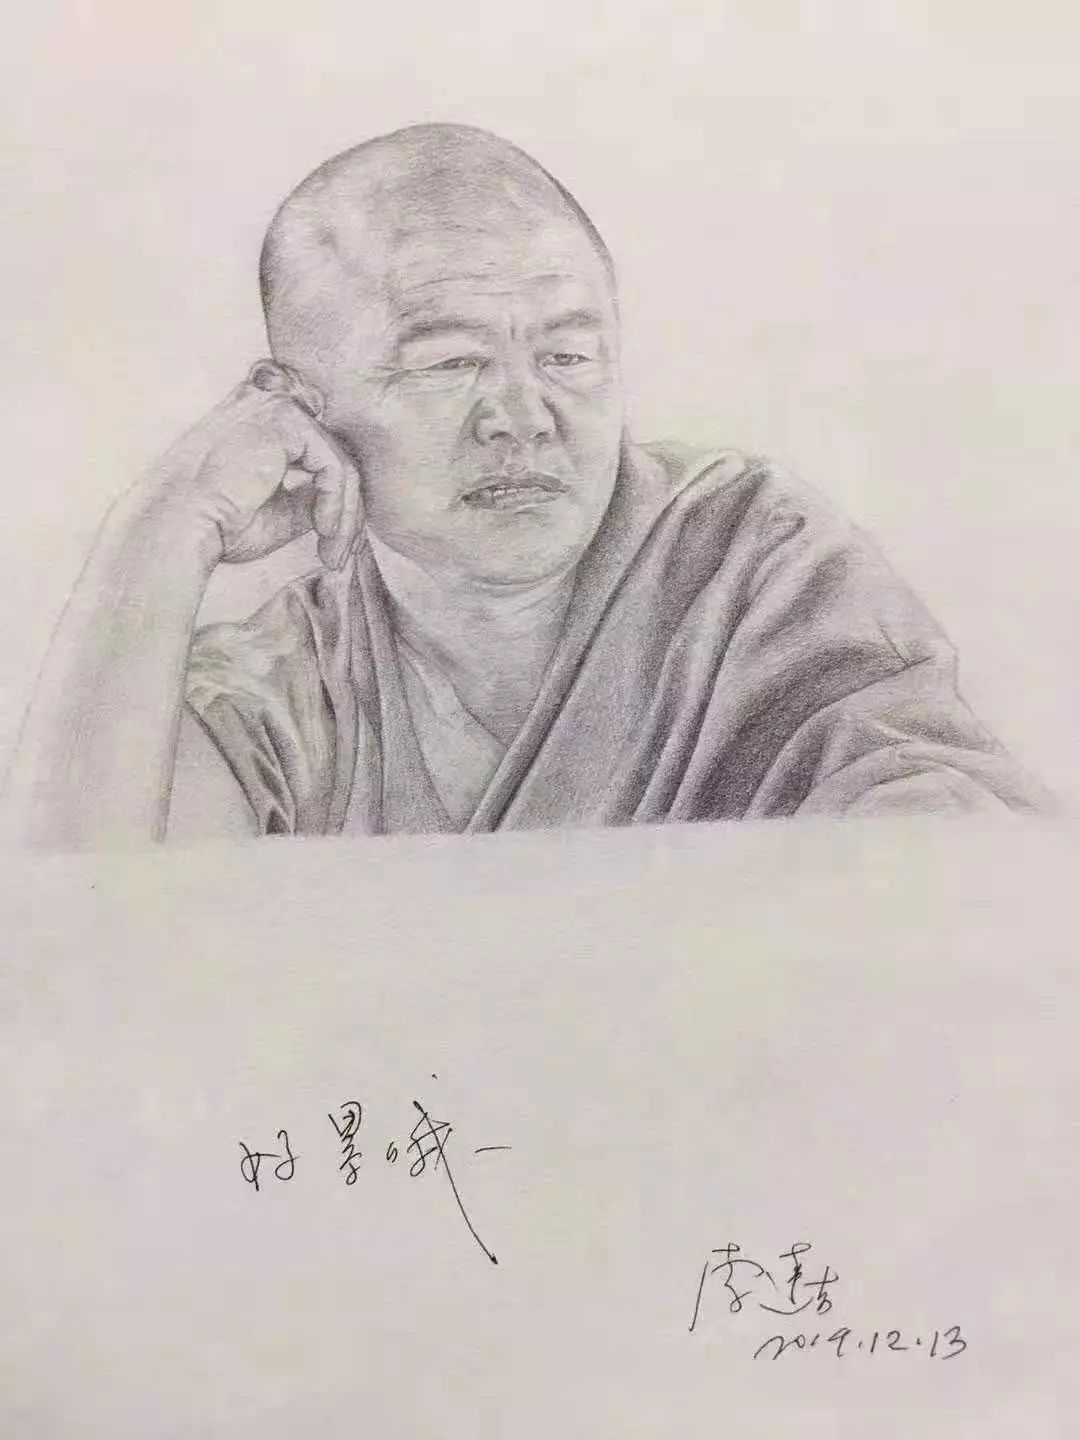 好累哦一
李达吉
2019.12.13